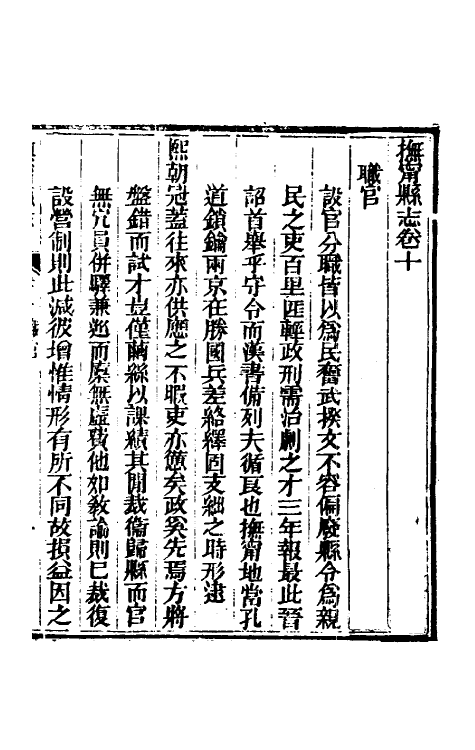 撫甯縣志卷十
職官
設官分職皆以爲民奮武揆文不容偏廢縣令爲親
民之吏百里匪輕政刑需治劇之才三年報最此晉
詔首舉乎守令而漢書備列夫循良也撫甯地當孔
道鎖鑰兩京在勝國兵差絡繹固支絀之時形逮
熙朝冠蓋往來亦供應之不暇吏亦憊矣政奚先焉方將
盤錯而試才豈僅繭絲以課績其閒裁衞歸縣而官
無冗員併驛兼遞而廩無虛費他如敎諭則已裁復
設營制則此減彼增惟情形有所不同故損益因之